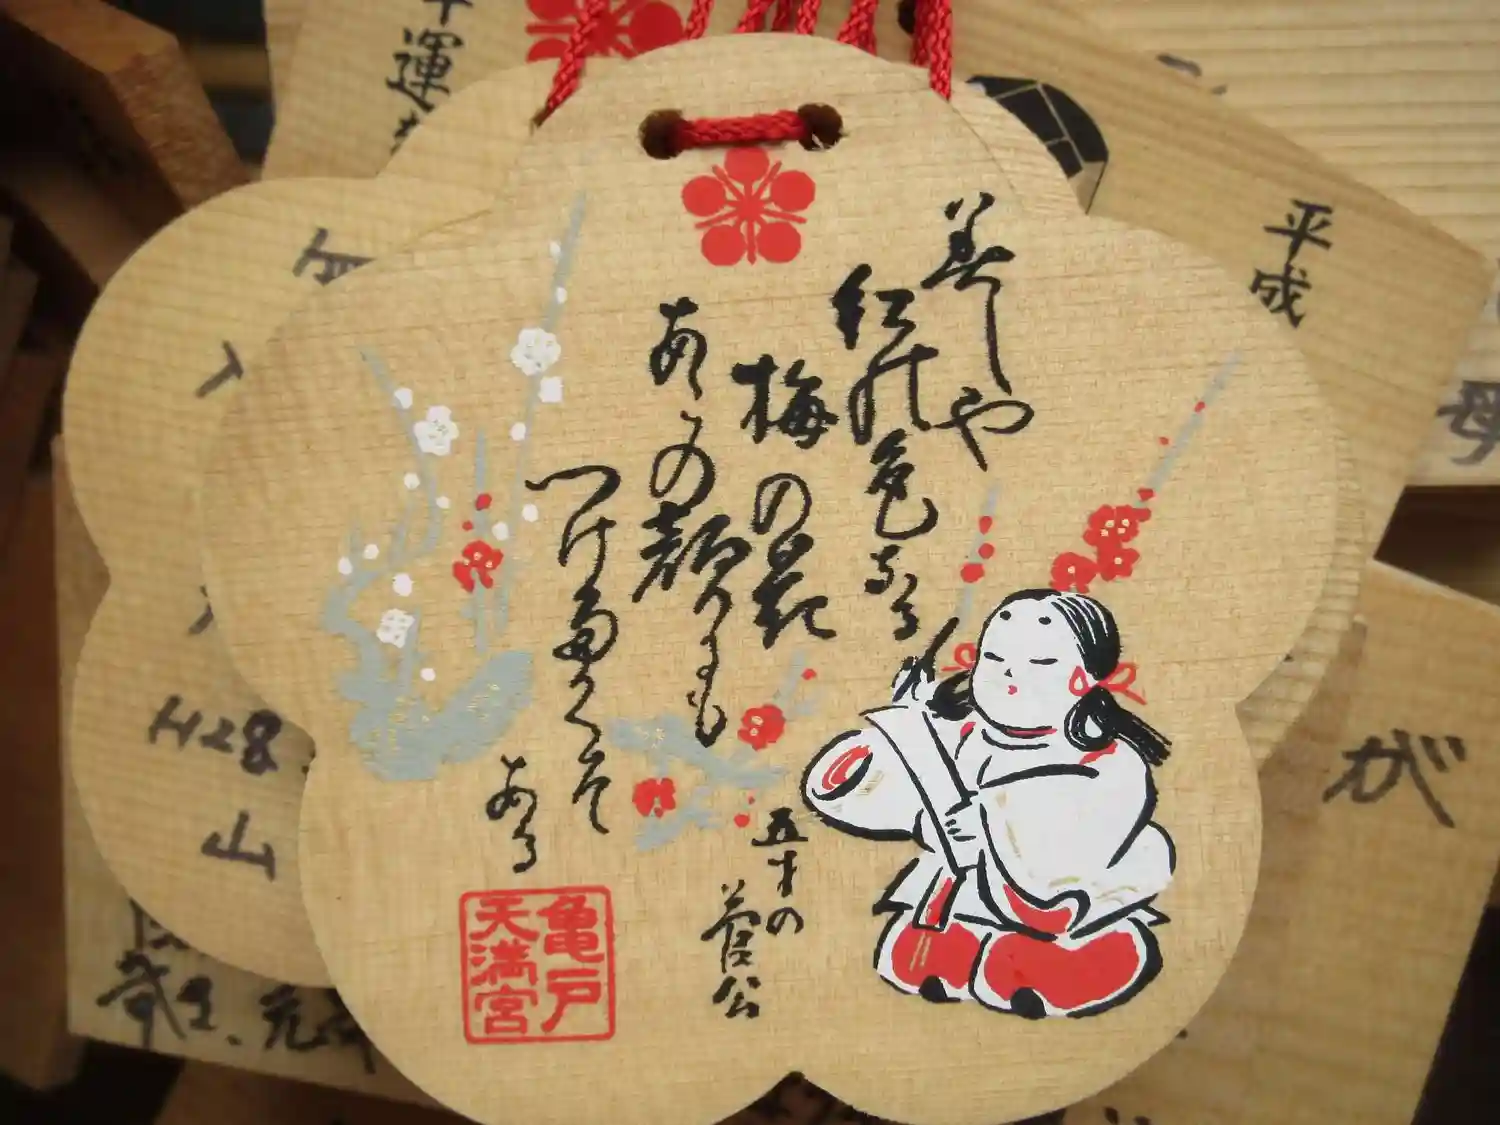 美しや
紅の色なる
梅の花
あこの顔にも
つけたくぞ
ある
五才の
菅公
亀戸
天満宮
平成
母
が
H28
山
運